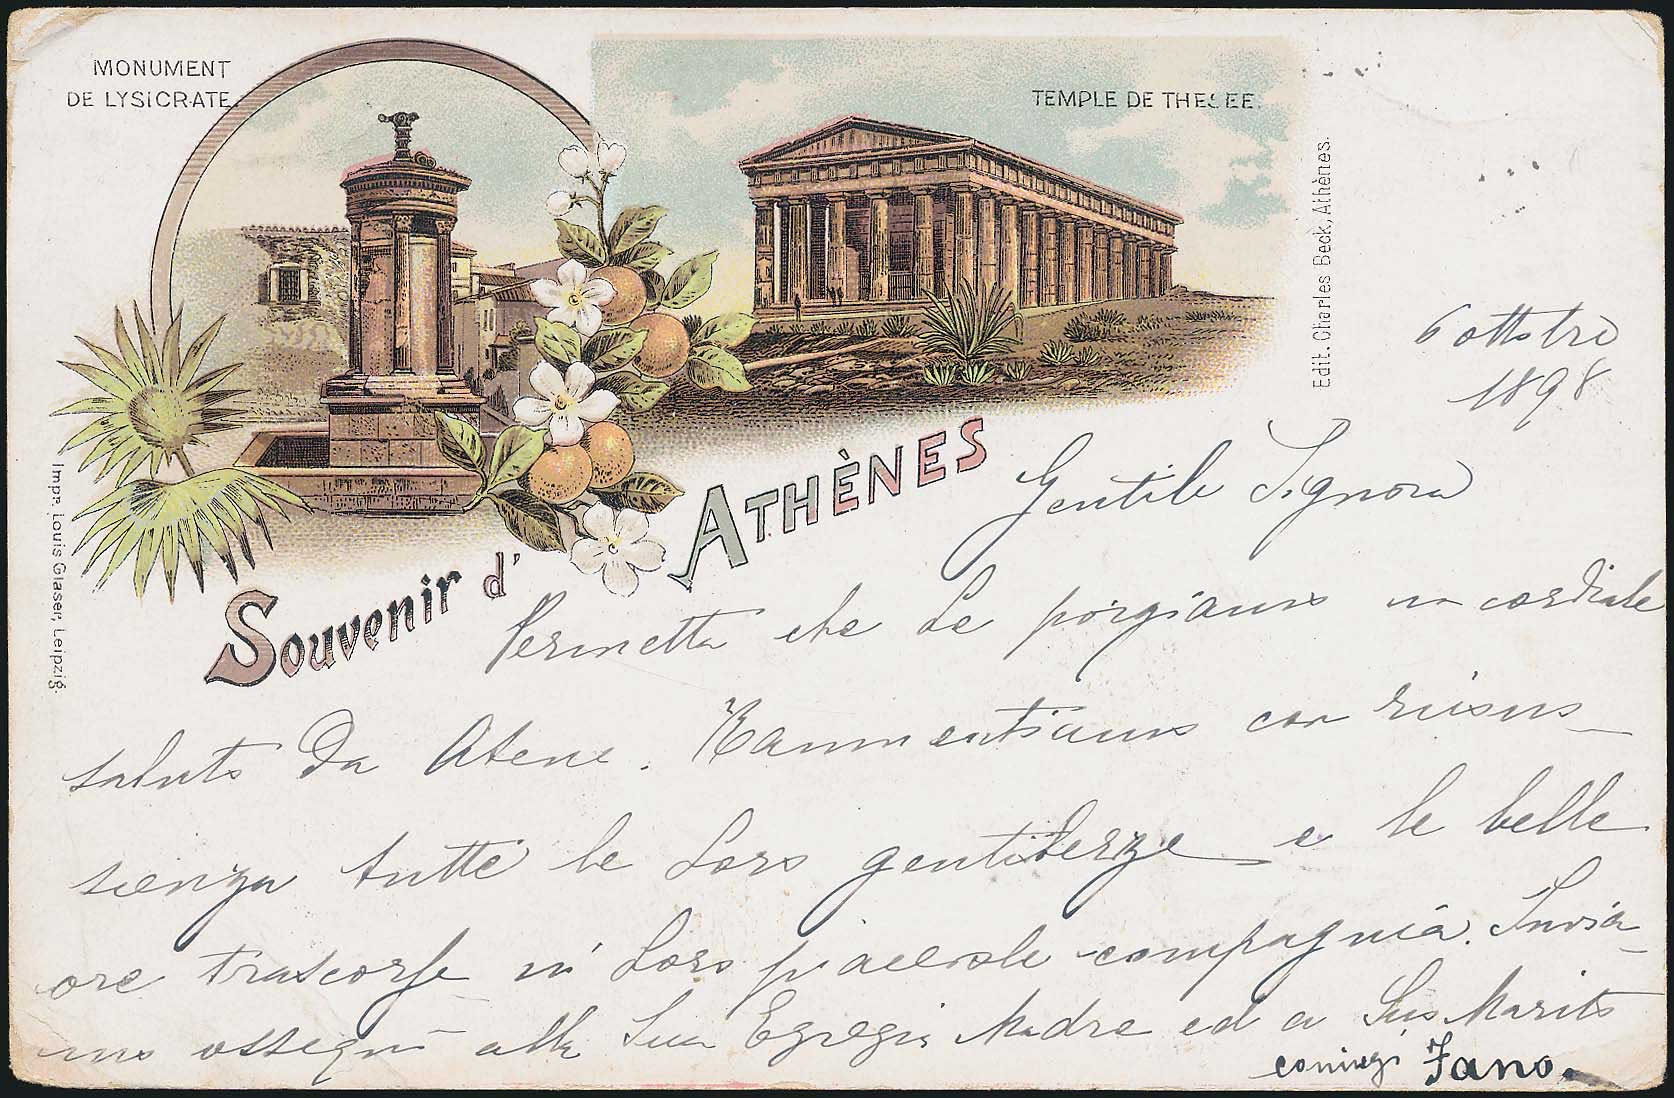 MONUMENT
DE LYSICRATE
TEMPLE DE THESEE
Edit. Charles Beck, Athènes.
Impr. Louis Glaser, Leipzig.
Souvenir d' ATHÈNES
6 ottobre
1898
Gentile Signora
Permetta che Le porgiamo un cordiale
saluto da Atene. Rammentiamo con ricono_
scenza tutte le Loro gentilezze e le belle
ore trascorse in Loro piacevole compagnia. Invia_
mo ossequi alla Sua Egregia Madre ed a Suo Marito
coniugi Fano.